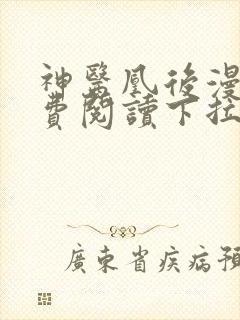 神醫凰後漫
費閱讀下拉
廣東省疾病預